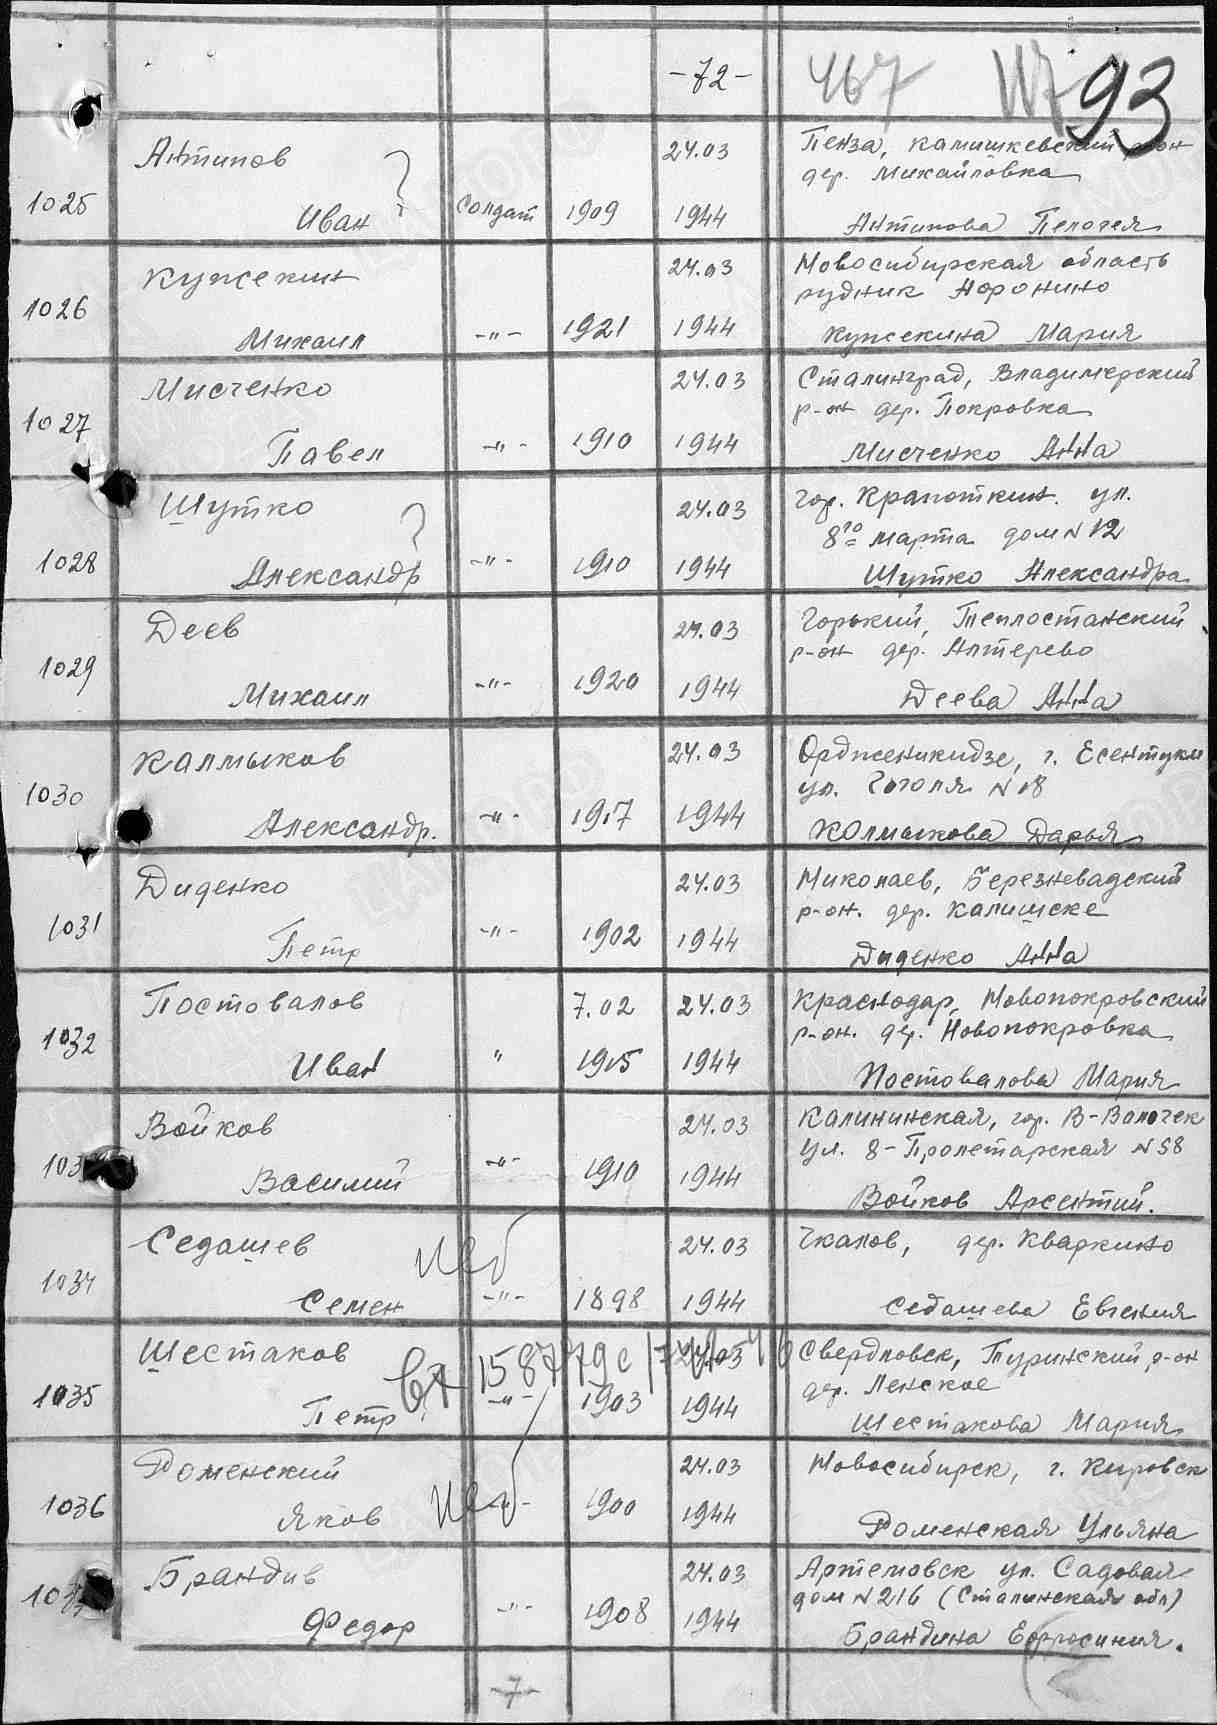 -72- 467 117 93
Антипов 24.03 Пенза, Камишкевский р-он
дер. Михайловка
1025 Иван ? солдат 1909 1944 Антипова Пелогея
Кужекин 24.03 Новосибирская область
рудник Норонино
1026 Михаил -"- 1921 1944 Кужекина Мария
Мисченко 24.03 Сталинград, Владимерский
р-он дер. Покровка
1027 Павел -"- 1910 1944 Мисченко Анна
Шутко 24.03 гор. Крапоткин. ул.
8го марта дом N 12
1028 Александр ? -"- 1910 1944 Шутко Александра
Деев 24.03 Горький, Теплостанский
р-он дер. Алтерево
1029 Михаил -"- 1920 1944 Деева Анна
Калмыков 24.03 Орджникидзе, г. Есентуки
ул. Гоголя N 18
1030 Александр. -"- 1917 1944 Колмыкова Дарья
Диденко 24.03 Николаев, Березневадский
р-он. дер. Калишске
1031 Петр -"- 1902 1944 Диденко Анна
Постовалов 7.02 24.03 Краснодар, Новопокровский
р-он. дер. Новопокровка
1032 Иван " 1915 1944 Постовалова Мария
Войков 24.03 Калининская, гор. В-Волочек
ул. 8-Пролетарская N 58
103 Василий -"- 1910 1944 Войков Арсентий.
Седашев 24.03 Чкалов, дер. Кваркино
1034 Семен -"- 1898 1944 Седашева Евгения
Шестаков 24.03 Свердловск, Туринский р-он
дер. Ленское
1035 Петр -"- 1903 1944 Шестакова Мария
Роменский 24.03 Новосибирск, г. Кировск
1036 Яков -"- 1900 1944 Роменская Ульяна
Брандив 24.03 Артемовск ул. Садовая
дом N 216 (Сталинская обл)
1037 Федор -"- 1908 1944 Брандина Ефросиния.
-7-